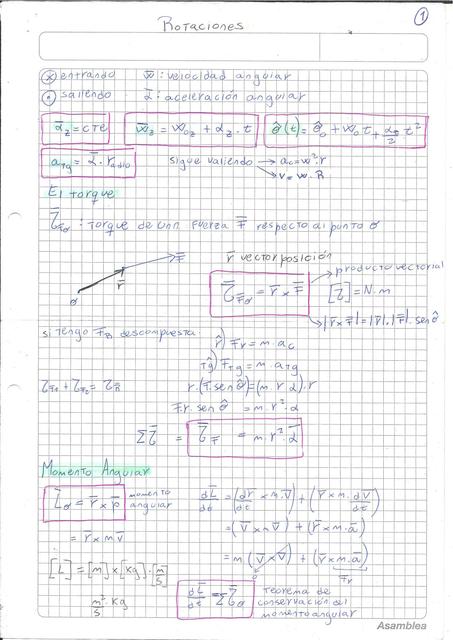 1
Rotaciones
⊗ entrando   w̅: velocidad angular
⊙ saliendo   α̅: aceleración angular
α̅z = cte   w̅z = w0z + αz · t   θ̂(t) = θ̂0 + w0 t + αz/2 t²
aTg = α̅ · radio   sigue valiendo → ac = w² · r
→ v = w · R
El torque
τ̅F̅o : torque de una fuerza F̅ respecto al punto o
F̅   r̅ vector posición
r̅   → producto vectorial
o   τ̅F̅o = r̅ × F̅   [τ̅] = N·m
→ |r̅ × F̅| = |r̅|·|F̅|· sen θ̂
si tengo FR descompuesta:   r̂) Fr = m · ac
Tĝ) FTg = m · aTg
τF1 + τF2 = τR̅   r·(F·sen θ̂) = (m·r·α)·r
F·r·sen θ̂ = m·r²·α
Στ̅ = τ̅F̅ = m·r²·α̅
Momento Angular
L̅o = r̅ × p̅   momento angular   dL̅/dt = (dr̅/dt × m·v̅) + (r̅ × m·dv̅/dt)
= r̅ × m v̅   = (v̅ × m v̅) + (r̅ × m·a̅)
= m (v̅ × v̅) + (r̅ × m·a̅)
[L] = [m] × [Kg] · [m/s]   0   Fr
m²/s · Kg   dL̅/dt = Στ̅o   Teorema de
conservación del
momento angular
Asamblea